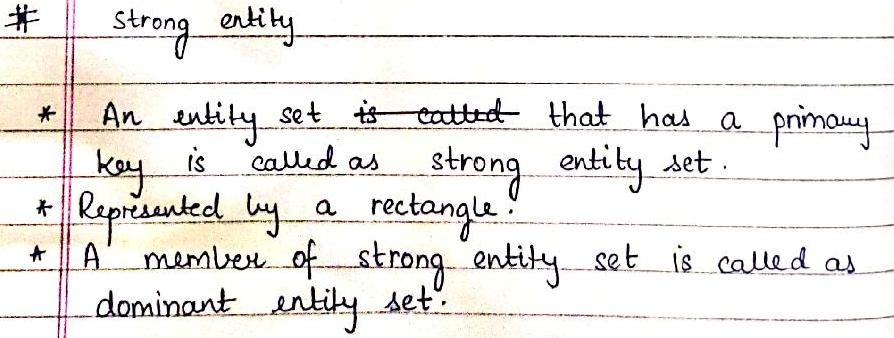 # Strong entity
* An entity set is called that has a primary
key is called as strong entity set.
* Represented by a rectangle.
* A member of strong entity set is called as
dominant entity set.